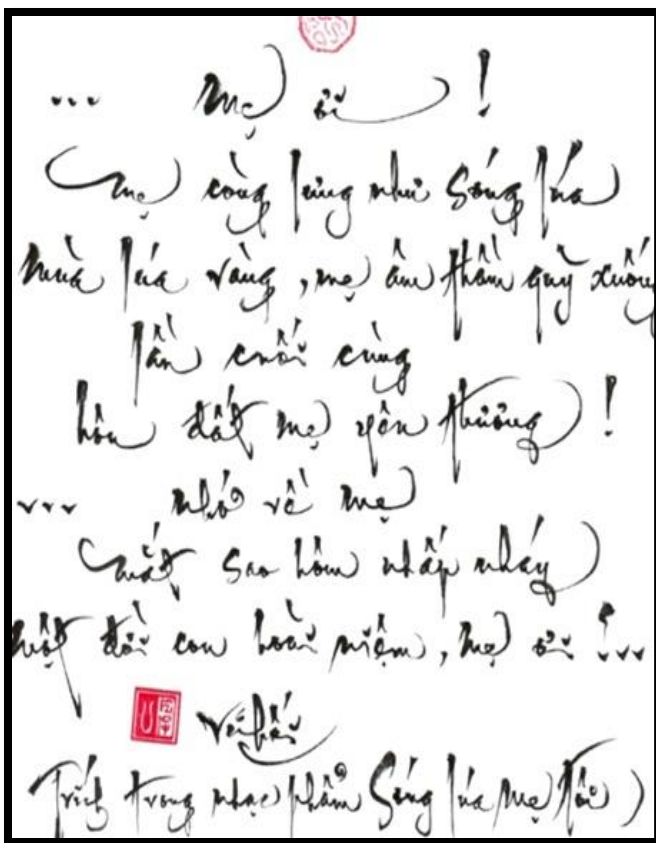 ... Mẹ ơi !
Mẹ còng lưng như sóng lúa
Mùa lúa vàng, mẹ âm thầm quỳ xuống
lần cuối cùng
hôn đất mẹ yên thương !
... nhớ về mẹ
mắt sao hôm nhấp nháy
một đời con hoài niệm, mẹ ơi !...
Trích trong nhạc phẩm Sóng lúa Mẹ tôi )